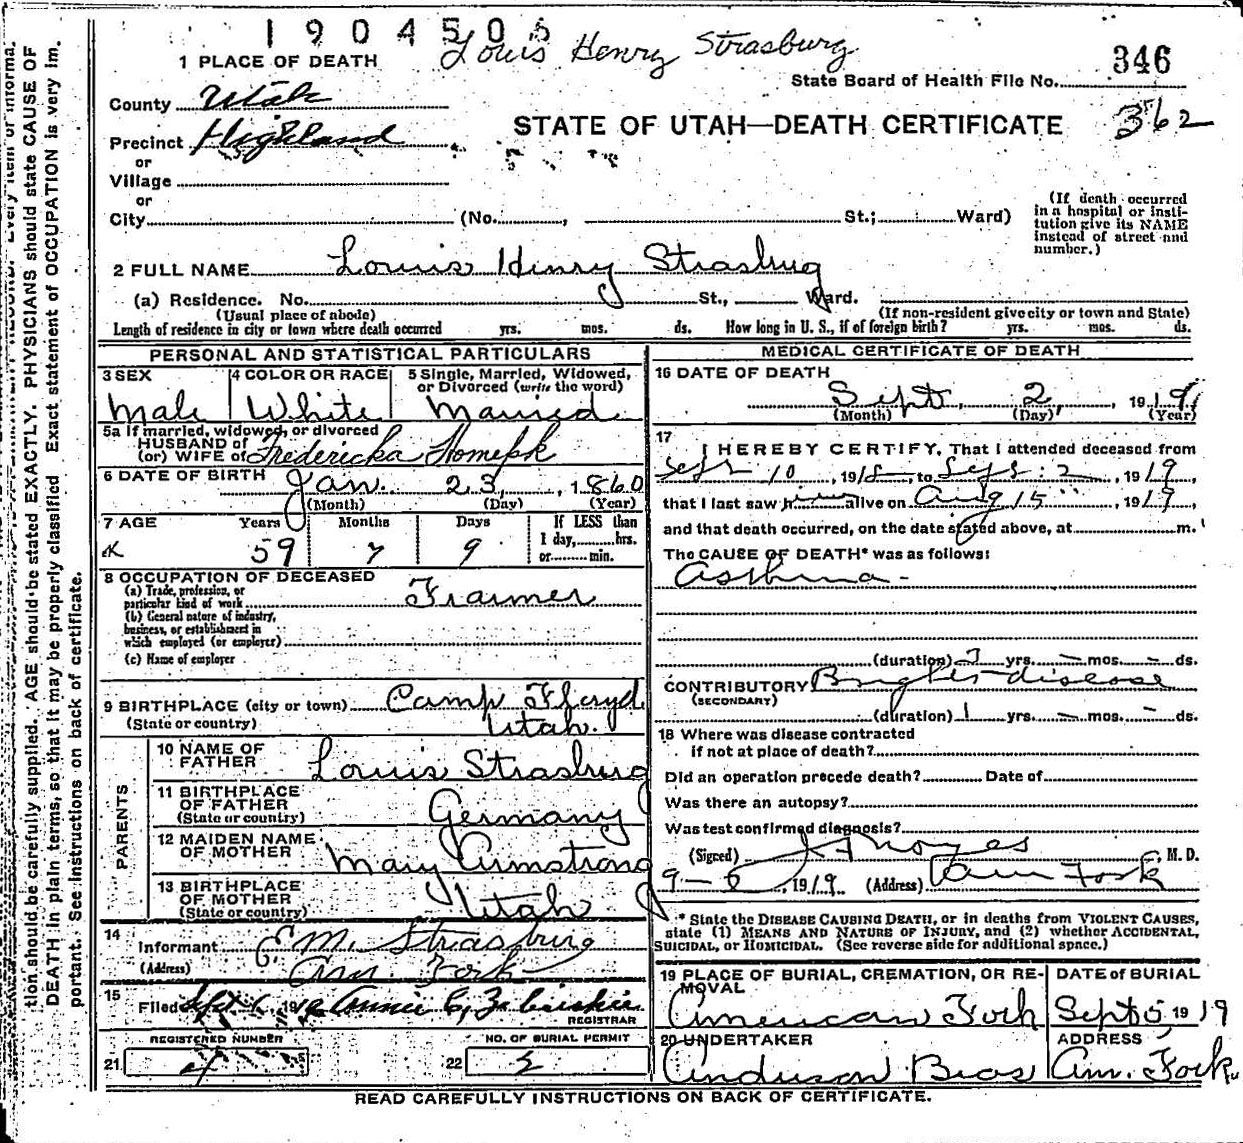 1904505
Louis Henry Strasburg
1 PLACE OF DEATH
State Board of Health File No. 346
County Utah
STATE OF UTAH—DEATH CERTIFICATE 362
Precinct Highland
or
Village
or
City (No. , St.; Ward)
(If death occurred
in a hospital or insti-
tution give its NAME
instead of street and
number.)
2 FULL NAME Louis Henry Strasbug
(a) Residence. No. St., Ward.
(Usual place of abode) (If non-resident give city or town and State)
Length of residence in city or town where death occurred yrs. mos. ds. How long in U. S., if of foreign birth? yrs. mos. ds.
PERSONAL AND STATISTICAL PARTICULARS
3 SEX 4 COLOR OR RACE 5 Single, Married, Widowed,
or Divorced (write the word)
Male White Married
5a If married, widowed, or divorced
HUSBAND of
(or) WIFE of Fredericka
6 DATE OF BIRTH Jan. 23, 1860
(Month) (Day) (Year)
7 AGE Years Months Days If LESS than
1 day, hrs.
or min.
59 7 9
8 OCCUPATION OF DECEASED
(a) Trade, profession, or
particular kind of work Fraimer
(b) General nature of industry,
business, or establishment in
which employed (or employer)
(c) Name of employer
9 BIRTHPLACE (city or town) Camp Floyd
(State or country) Utah.
PARENTS
10 NAME OF
FATHER Louis Strasburg
11 BIRTHPLACE
OF FATHER
(State or country) Germany
12 MAIDEN NAME
OF MOTHER Mary Armstrong
13 BIRTHPLACE
OF MOTHER
(State or country) Utah
14
Informant E M. Strasburg
(Address) Am. Fork
15
Filed Sept 6, 19
REGISTRAR
REGISTERED NUMBER NO. OF BURIAL PERMIT
21 22
MEDICAL CERTIFICATE OF DEATH
16 DATE OF DEATH
Sept. 2, 1919
(Month) (Day) (Year)
17
I HEREBY CERTIFY, That I attended deceased from
Sept 10, 1918, to Sept. 2, 1919
that I last saw him alive on Aug 15, 1919,
and that death occurred, on the date stated above, at m.
The CAUSE OF DEATH* was as follows:
Asthma-
(duration) yrs. - mos. - ds.
CONTRIBUTORY Brights disease
(SECONDARY)
(duration) 1 yrs. - mos. - ds.
18 Where was disease contracted
if not at place of death?
Did an operation precede death? Date of
Was there an autopsy?
Was test confirmed diagnosis?
(Signed) Noyes, M. D.
9-6, 1919. (Address) Am Fork
* State the DISEASE CAUSING DEATH, or in deaths from VIOLENT CAUSES,
state (1) MEANS AND NATURE OF INJURY, and (2) whether ACCIDENTAL,
SUICIDAL, or HOMICIDAL. (See reverse side for additional space.)
19 PLACE OF BURIAL, CREMATION, OR RE-
MOVAL DATE of BURIAL
American Fork Sept 5, 1919
20 UNDERTAKER ADDRESS
Anderson Bros Am. Fork
READ CAREFULLY INSTRUCTIONS ON BACK OF CERTIFICATE.
tion should be carefully supplied. AGE should be stated EXACTLY. PHYSICIANS should state CAUSE OF
DEATH in plain terms, so that it may be properly classified Exact statement of OCCUPATION is very im-
portant. See instructions on back of certificate.